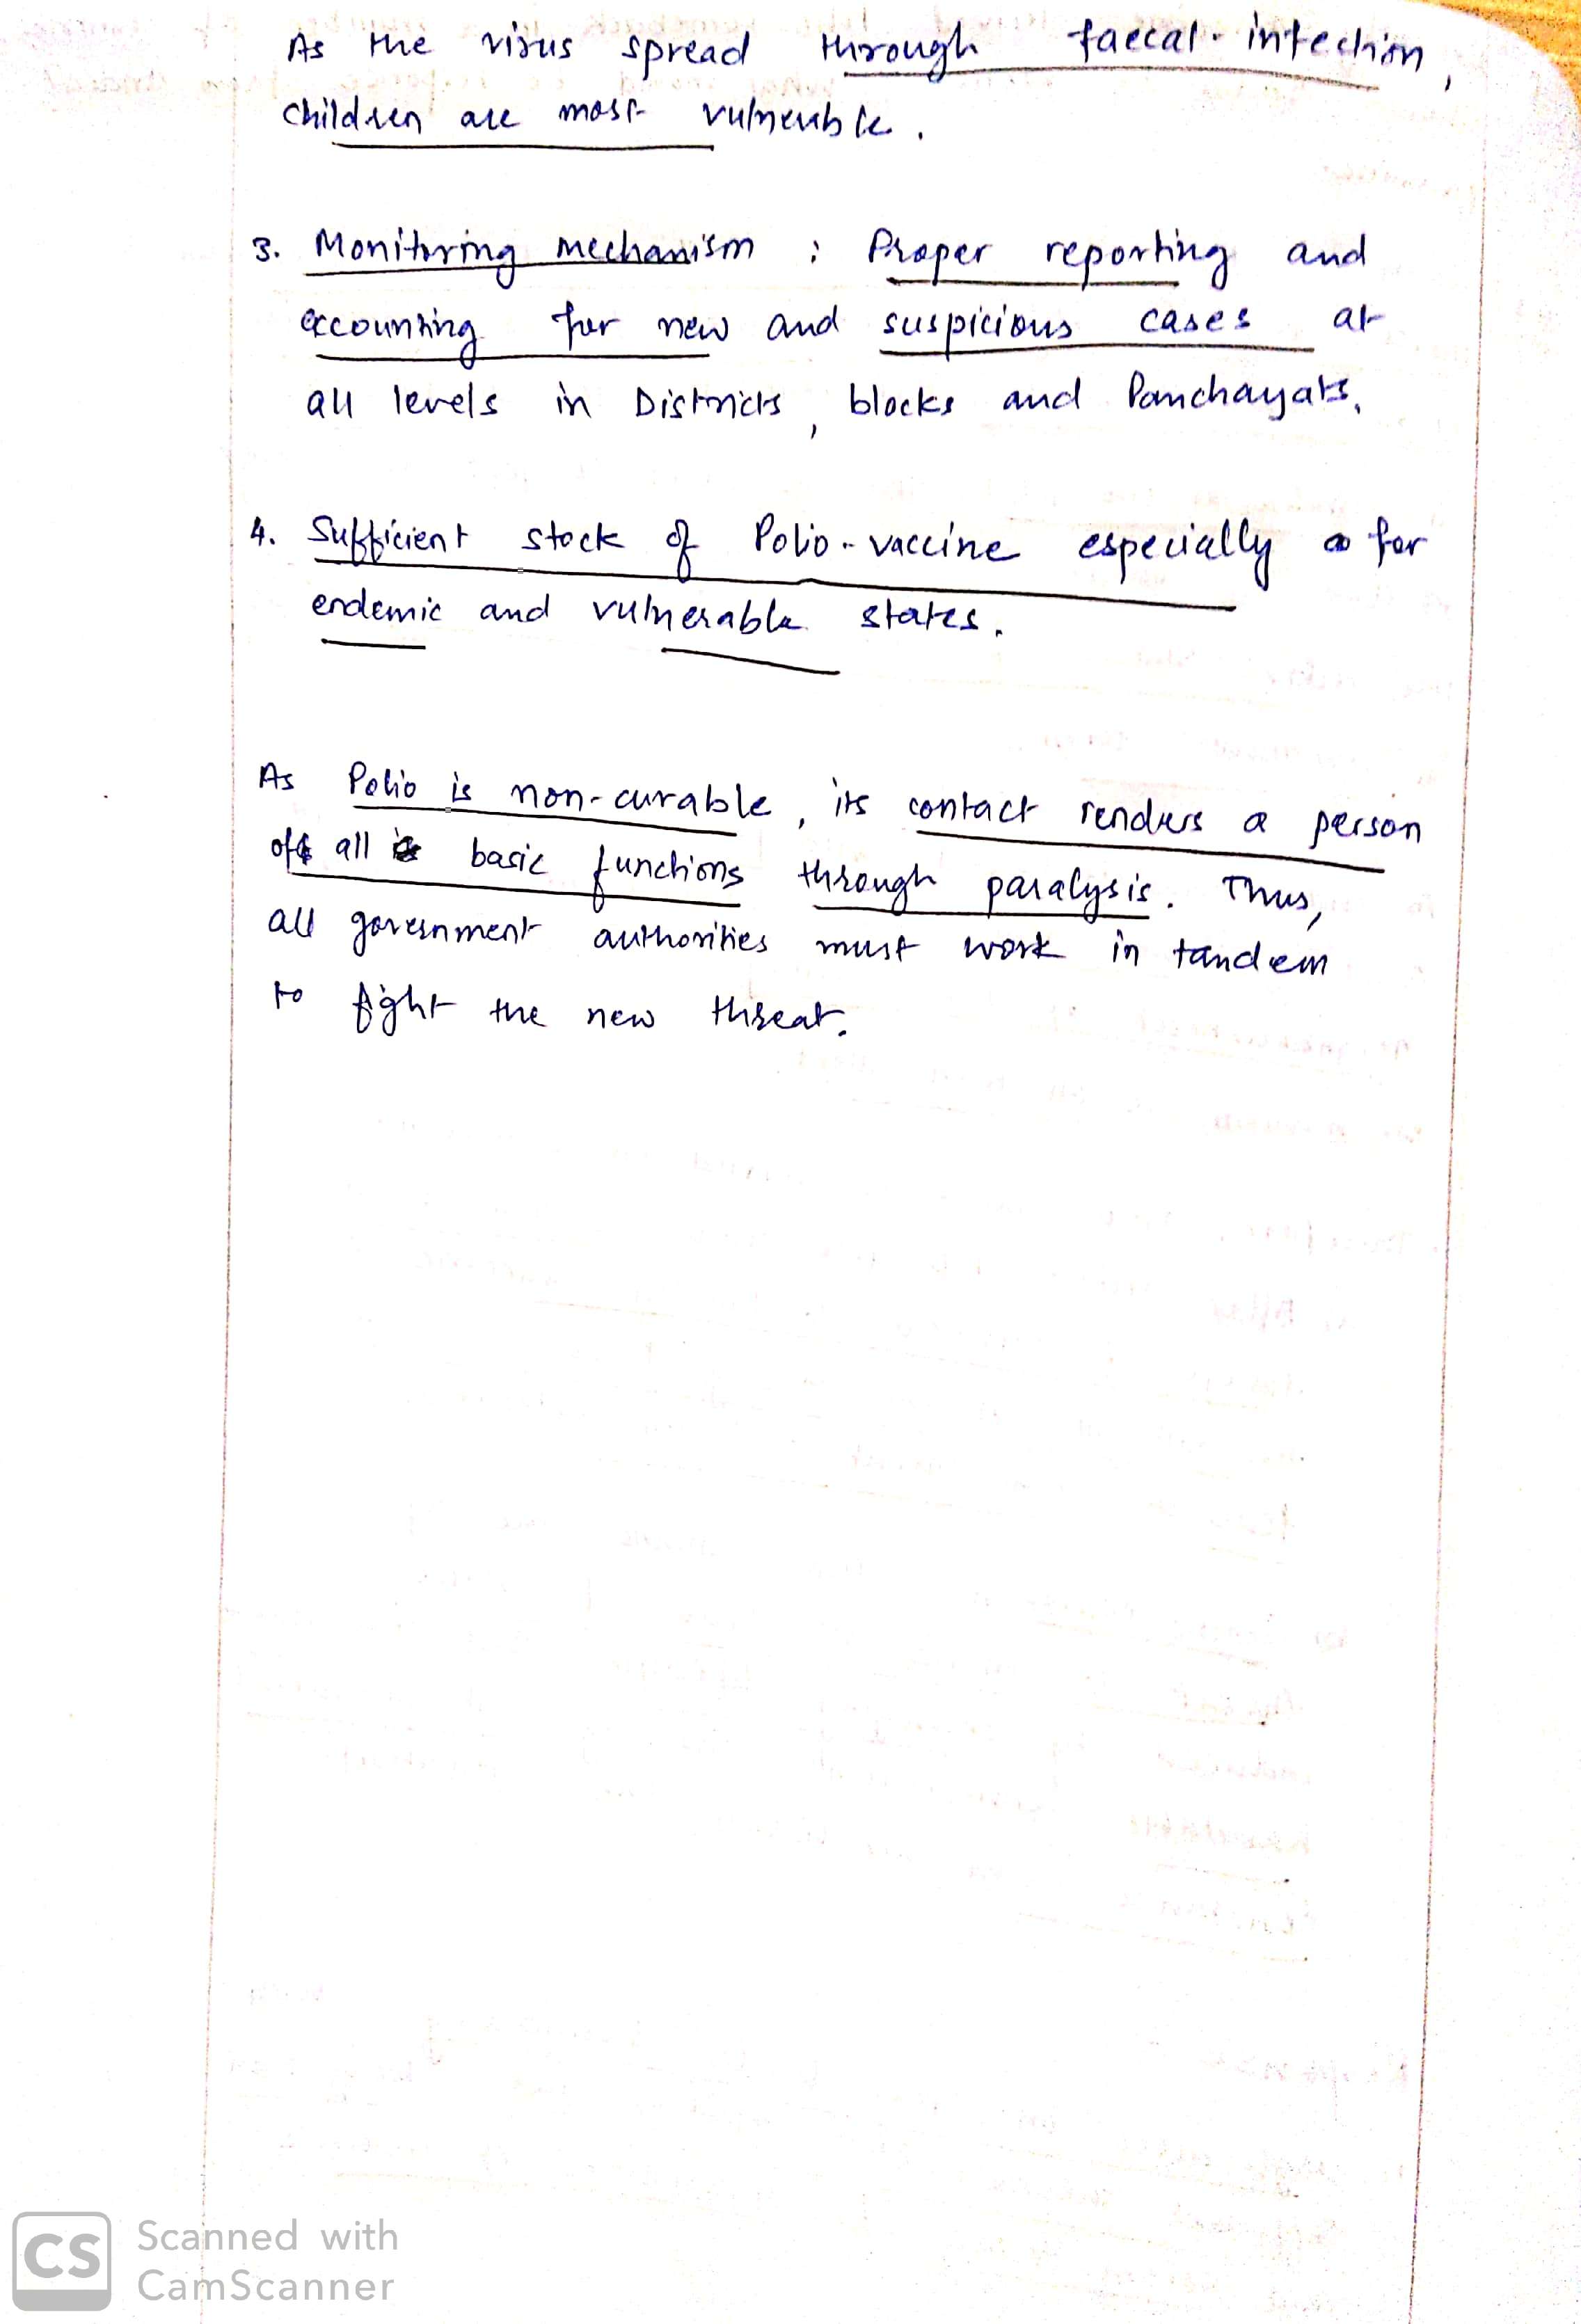 As the virus spread through faecal-infection,
children are most vulnerable.
3. Monitoring mechanism : Proper reporting and
accounting for new and suspicious cases at
all levels in Districts, blocks and Panchayats.
4. Sufficient stock of Polio-vaccine especially for
endemic and vulnerable states.
As Polio is non-curable, its contact renders a person
off all basic functions through paralysis. Thus,
all government authorities must work in tandem
to fight the new threat.
CS Scanned with
CamScanner